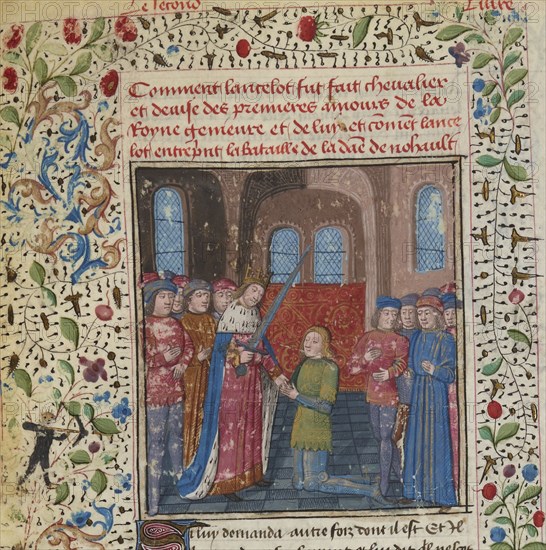 Le second
Livre
Comment lancelot fut fait chevalier
et devise des premieres amours de la
Royne genieure et de luy et cōmēt lance
lot entreprint la Bataille de la dāe de nohault
luy demanda autre foiz dont il est Et Il